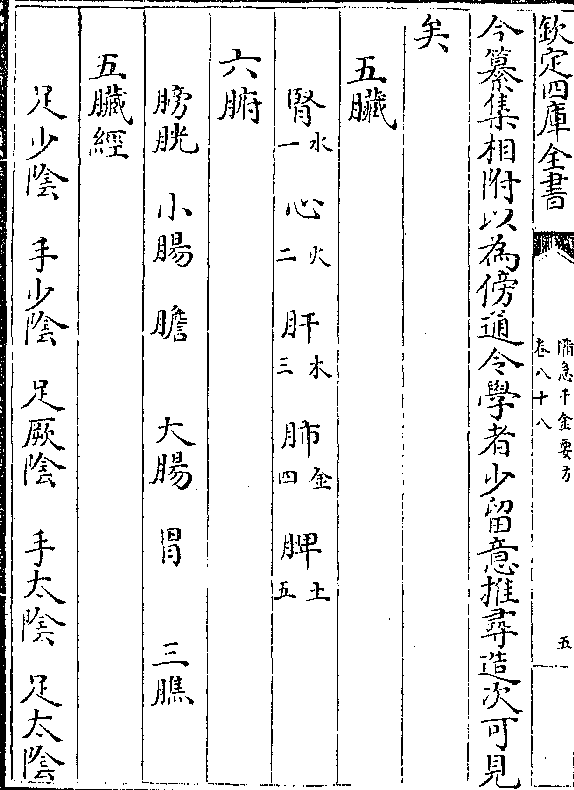 欽定四庫全書
備急千金要方
卷八十八
五
今纂集相附以為傍通令學者少留意推尋造次可見
矣
五臟
腎水一 心火二 肝木三 肺金四 脾土五
六腑
膀胱 小腸 膽 大腸 胃 三膲
五臟經
足少陰 手少陰 足厥陰 手太陰 足太陰